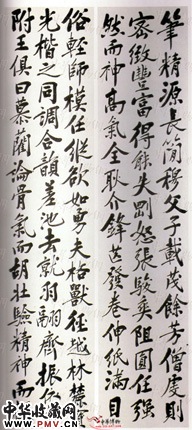 筆精源長簡穆父子戴茂餘芳僧虔則
密緻豐富得能失罰怒張駿爽阻圓任強
然而神高氣全耿介鋒芒發卷伸紙滿目
俗輕師模任縱欲如勇夫格獸徑地林榛
光楷之同調合韻差池去就羽翮齊振
附王俱曰慕藺論骨氣而胡壯驗精神而
中华收藏网
WWW.PMV.CN
中华收藏网
WWW.PMV.CN